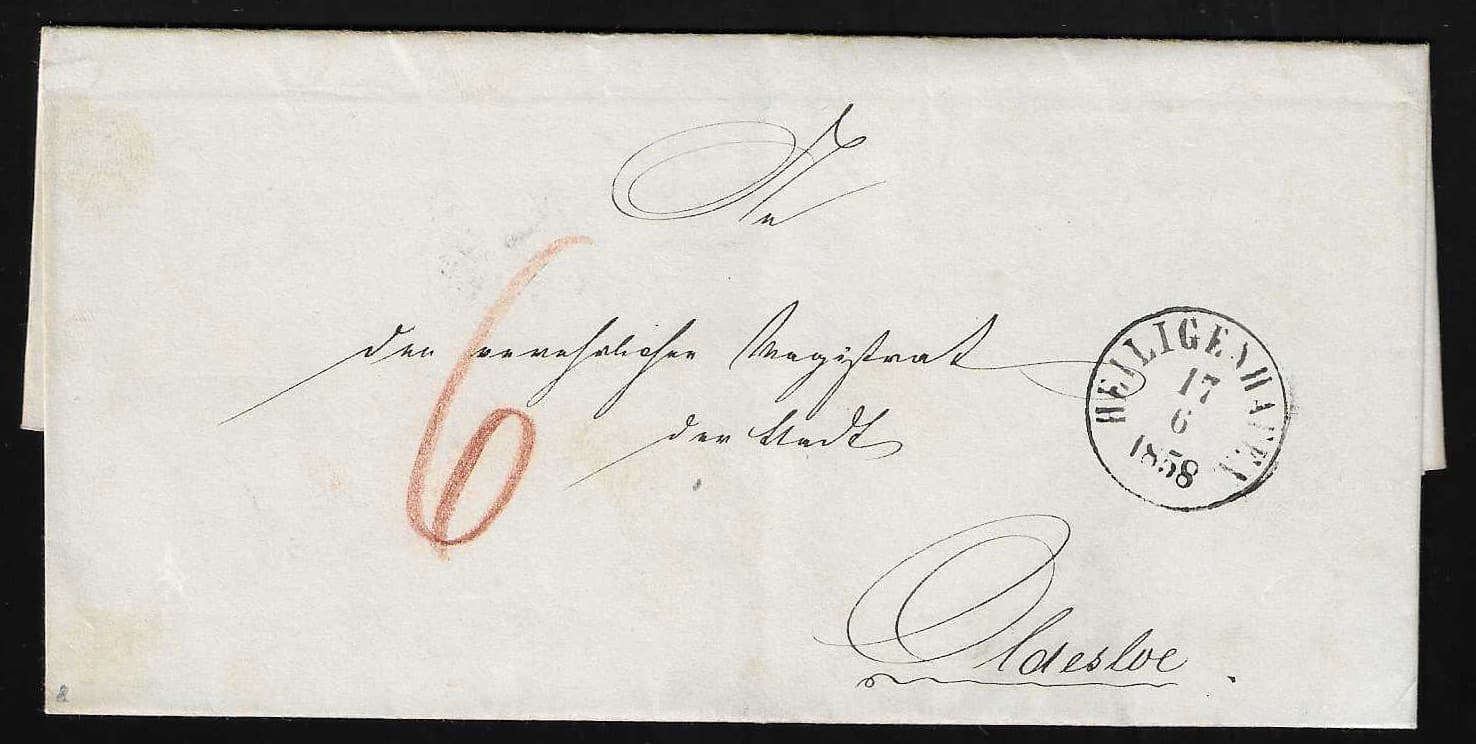 An
den verehrlichen Magistrat
der Stadt
Oldesloe.
6
HEILIGENHAFEN
17
6
1858